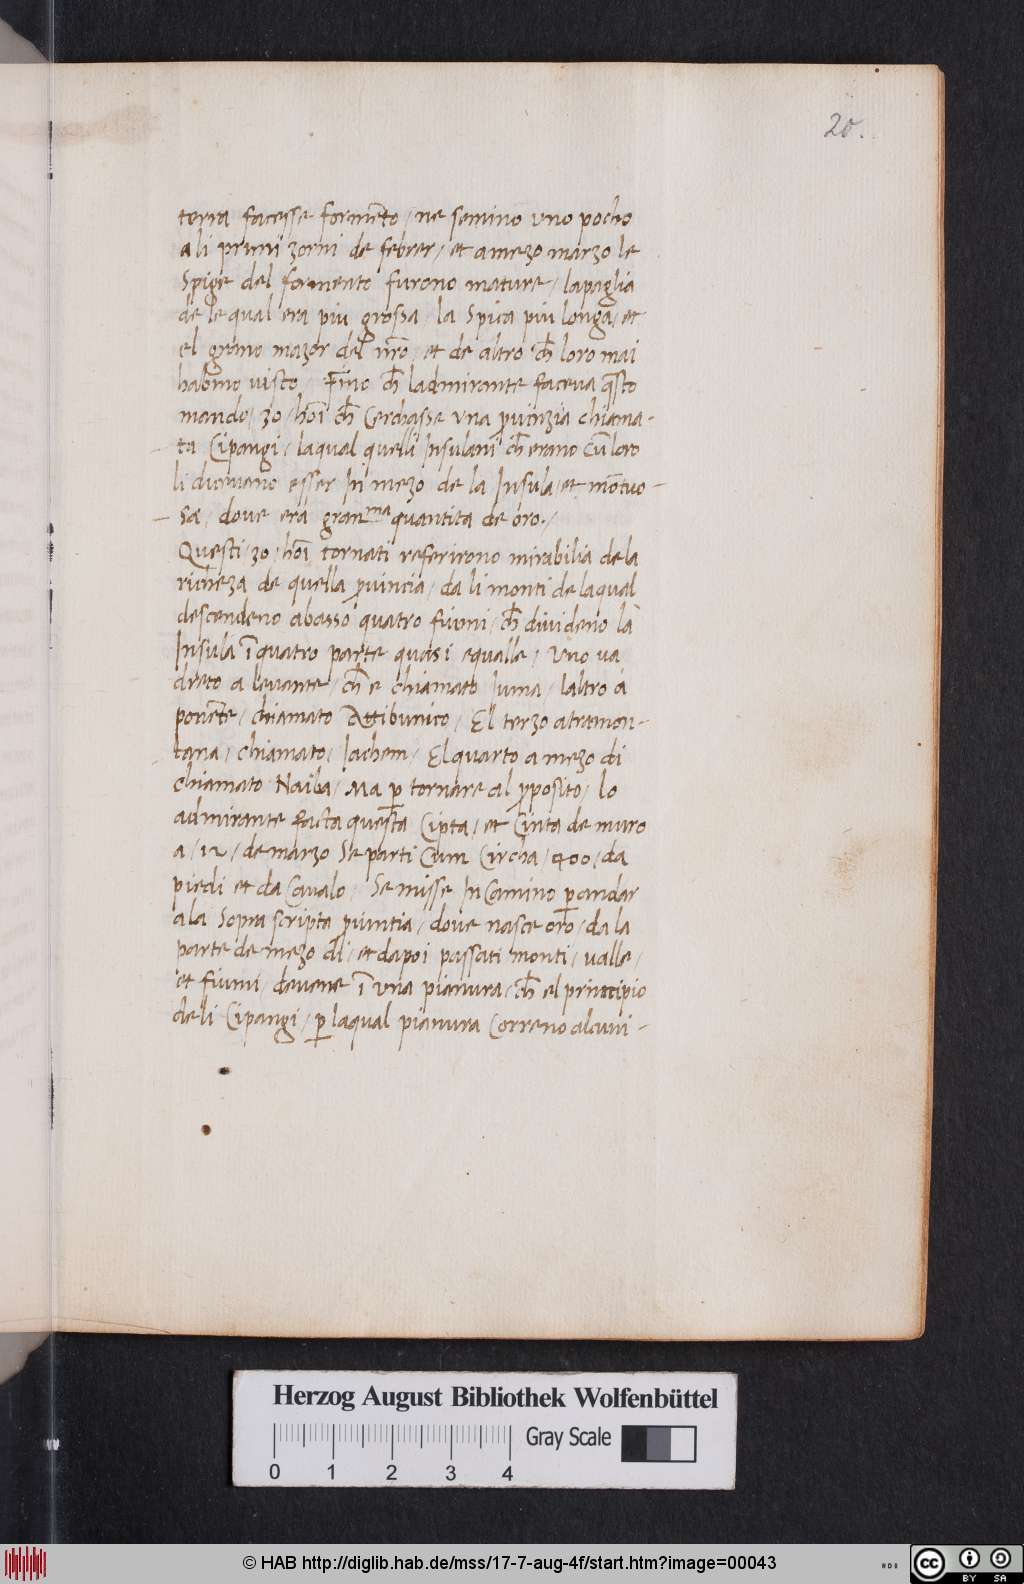 20.
terra facesse form̄eto / ne semino uno pocho
a li primi zorni de febrer / et a mezo marzo le
Spige del formento furono mature / la paglia
de le qual era piu grossa / la Spica piu longa / et
el grano mazor del nr̄o / et de altro ch̄ loro mai
habino visto / Fino ch̄ ladmirante faceva q̄sto
mando / 30 / hoī ch̄ Cerchasse una ꝓvinzia chiama-
ta Cipangi / laqual quelli Insulani ch̄ erano Cū loro
li dicevano esser In mezo de la Insula / et mōtuo-
sa / dove era granma quantita de oro. /
Questi / 30 / hoī tornati referirono mirabilia de la
richeza de quella ꝓvincia / da li monti de laqual
descendeno abasso quatro fiumi / ch̄ divideno la
Insula ī quatro parte quasi equalle / Uno va
dreto a levante / ch̄ e chiamato Iuma / laltro a
ponēte / chiamato Attibunico / El terzo a tramon-
tana / chiamato / Iachem / El quarto a mezo di
chiamato Naiba / Ma ꝑ tornare al ꝓposito / lo
admirante facta questa Cipta / et Cinta de muro
a / 12 / de marzo Se parti Cum Circha / 400 / da
piedi et da Cavalo / Se misse In Camino ꝑ andar
a la Sopra scripta ꝓvintia / dove nasce oro / da la
parte de mezo di / et dapoi passati monti / valle /
et fiumi / devene ī una pianura / ch̄ el principio
de li Cipangi / ꝑ laqual pianura Correno alcuni -
Herzog August Bibliothek Wolfenbüttel
Gray Scale
0 1 2 3 4
© HAB http://diglib.hab.de/mss/17-7-aug-4f/start.htm?image=00043
cc BY SA